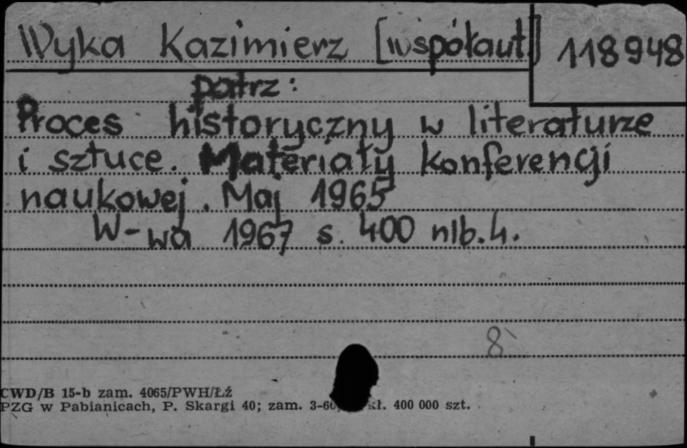 Wyka Kazimierz [współaut.] 118948
patrz:
Proces historyczny w literaturze
i sztuce. Materiały konferencji
naukowej. Maj 1965
W-wa 1967 s. 400 nlb. 4.
8
CWD/B 15-b zam. 4065/PWH/ŁŹ
PZG w Pabianicach, P. Skargi 40; zam. 400 000 szt.